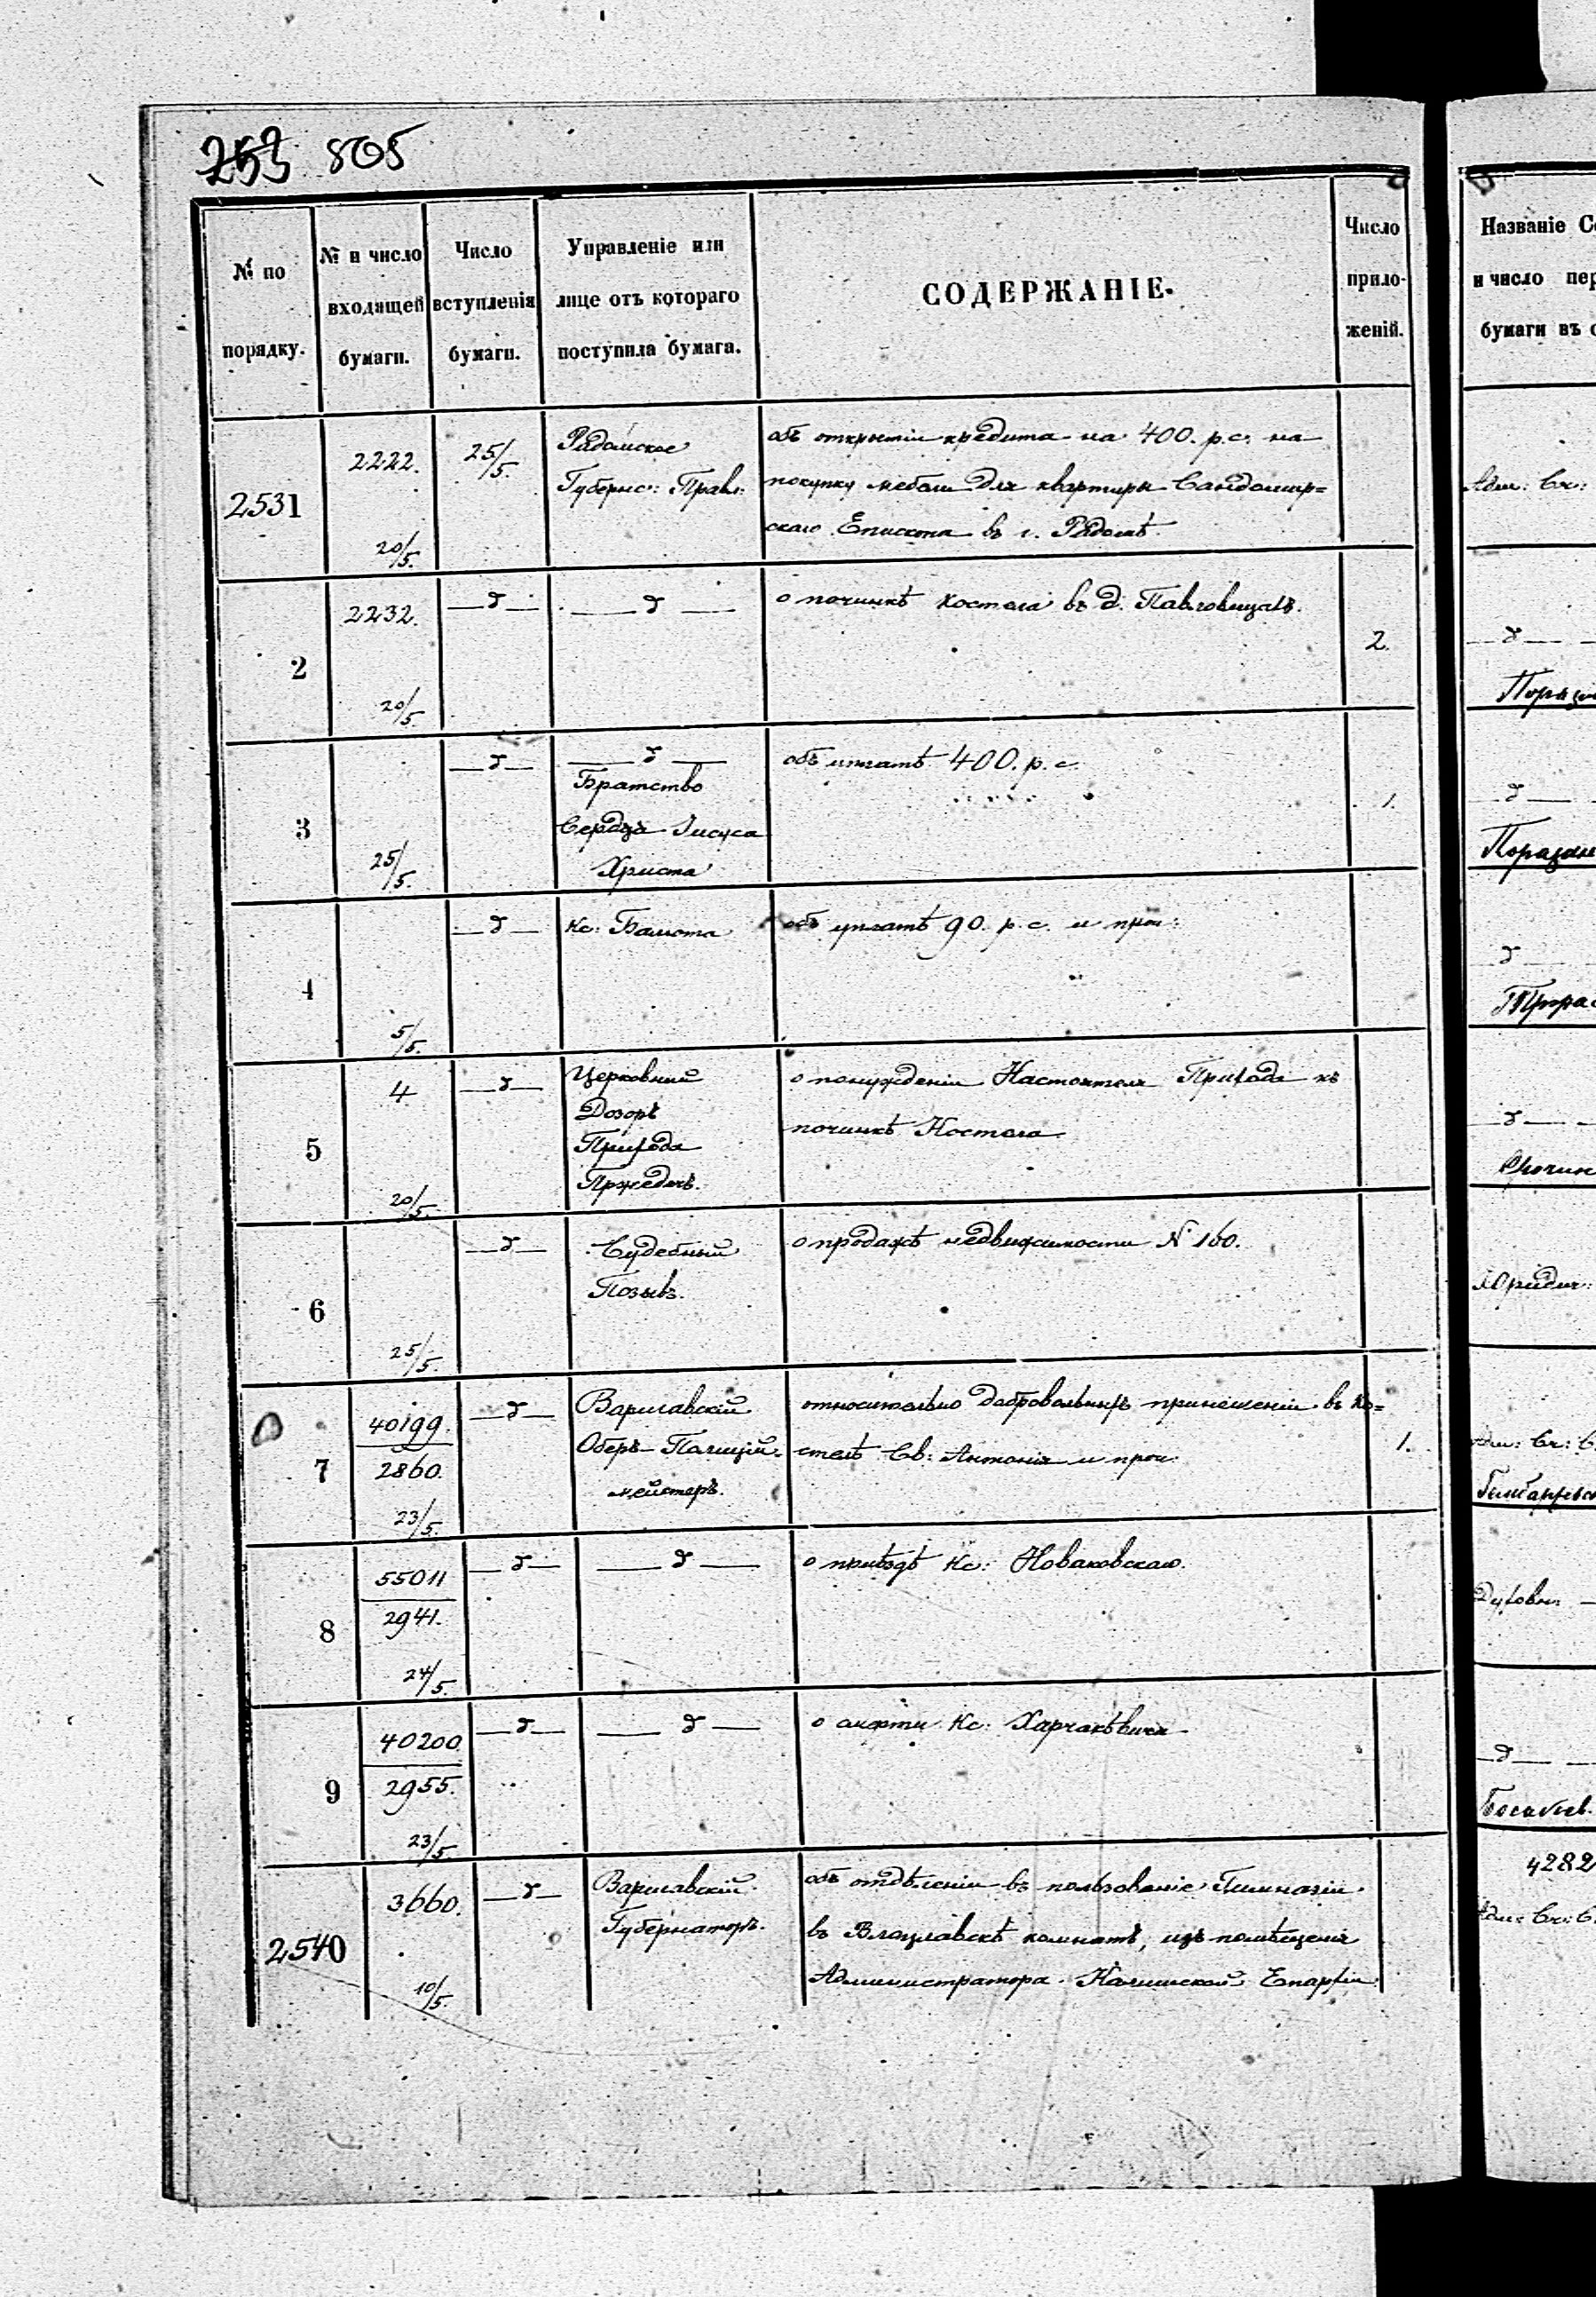 253 805
№ по порядку.
№ и число входящей бумаги.
Число вступленія бумаги.
Управленіе или лице отъ котораго поступила бумага.
СОДЕРЖАНІЕ.
Число приложеній.
2531
2222.
20/5.
25/5.
Радомское
Губернс: Правл:
объ открытіи кредита на 400. р. с. на
покупку мебели для квартиры Сандомир=
скаго Епископа въ г. Радомѣ.
2
2232.
20/5.
—д—
—д—
о починкѣ костела въ д. Павловицахъ.
2.
3
25/5.
—д—
—д—
Братство
Сердца Іисуса
Христа
объ уплатѣ 400. р. с.
1.
4
5/5.
—д—
Кс:
объ уплатѣ 90. р. с. и проч:
5
4
20/5.
—д—
Церковный
Дозоръ
Прихода
Пржедечъ.
о понужденіи Настоятеля Прихода къ
починкѣ Костела
6
25/5.
—д—
Судебный
Позывъ.
о продажѣ недвижимости № 160.
7
40199.
2860.
23/5.
—д—
Варшавскій
Оберъ-Полицій-
мейстеръ.
относительно добровольныхъ приношеній въ Ко=
стелѣ Св: Антонія и проч:
1.
8
55011
2941.
24/5.
—д—
—д—
о пріѣздѣ Кс: Новаковскаго.
9
40200
2955.
23/5.
—д—
—д—
о смерти Кс:
2540
3660.
10/5.
—д—
Варшавскій
Губернаторъ.
объ отдѣленіи въ пользованіе Гимназіи
въ Влоцлавскѣ комнатъ, изъ помѣщенія
Администратора Калишской Епархіи
Названіе С
и число пер
бумаги въ с
Адм: Ск:
—д—
—д—
—д—
—д—
Юридич:
Адм: Ск: С
Духовн:
—д—
4282
Адм: Ск: С